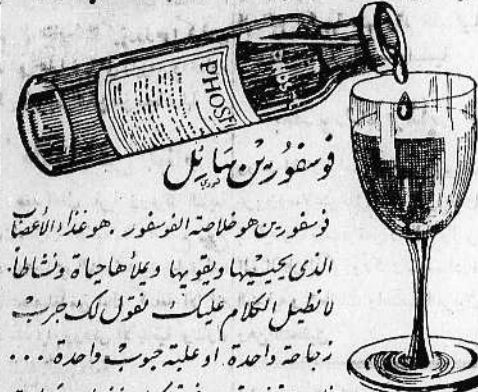 PHOSF
فوسفورين سائل
فوسفورين هو خلاصة الفوسفور. هو غذاء الأعصاب
الذى يحييها ويقويها ويملأها حياة ونشاطاً.
لا نطيل الكلام عليك نقول لك جرب
زجاجة واحدة. او علبة حبوب واحدة...